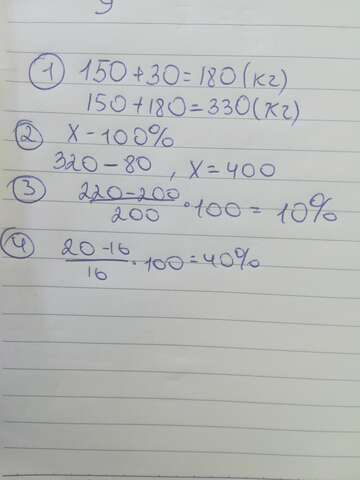 ① 150+30=180(кг)
150+180=330(кг)
② x-100%
320-80, x=400
③ 220-200/200 · 100=10%
④ 20-16/16 · 100=40%